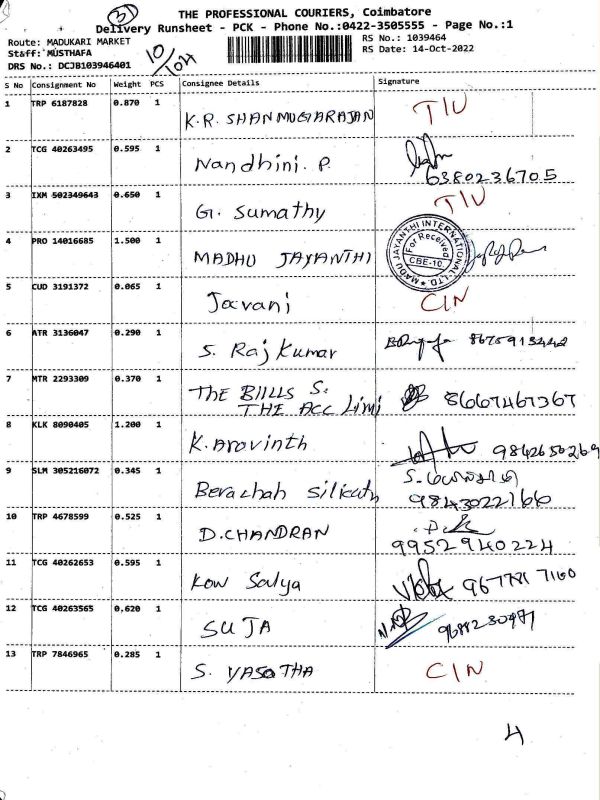 31
THE PROFESSIONAL COURIERS, Coimbatore
Delivery Runsheet - PCK - Phone No.:0422-3505555 - Page No.:1
Route: MADUKARI MARKET
Staff: MUSTHAFA
DRS No.: DCJB103946401
10/104
RS No.: 1039464
RS Date: 14-Oct-2022
S No Consignment No Weight PCS Consignee Details Signature
1 TRP 6187828 0.870 1 K.R. SHANMUGARAJAN T/U
2 TCG 40263495 0.595 1 Nandhini. P. 6380236705
3 IXM 502349643 0.650 1 G. Sumathy T/U
4 PRO 14016685 1.500 1 MADHU JAYANTHI
MADU JAYANTHI INTERNATIONAL LTD.
For Received
CBE-10
5 CUD 3191372 0.065 1 Jeevani C/N
6 ATR 3136047 0.290 1 S. Raj Kumar 8675913442
7 MTR 2293309 0.370 1 THE BIILLS S.
THE ACC Limi 8667467367
8 KLK 8090405 1.200 1 K. Aravinth 9842650269
9 SLM 305216072 0.345 1 Berachah 9843022166
10 TRP 4678599 0.525 1 D.CHANDRAN 9952940224
11 TCG 40262653 0.595 1 Kow Salya
12 TCG 40263565 0.620 1 SUJA
13 TRP 7846965 0.285 1 S. YASOTHA C/N
4